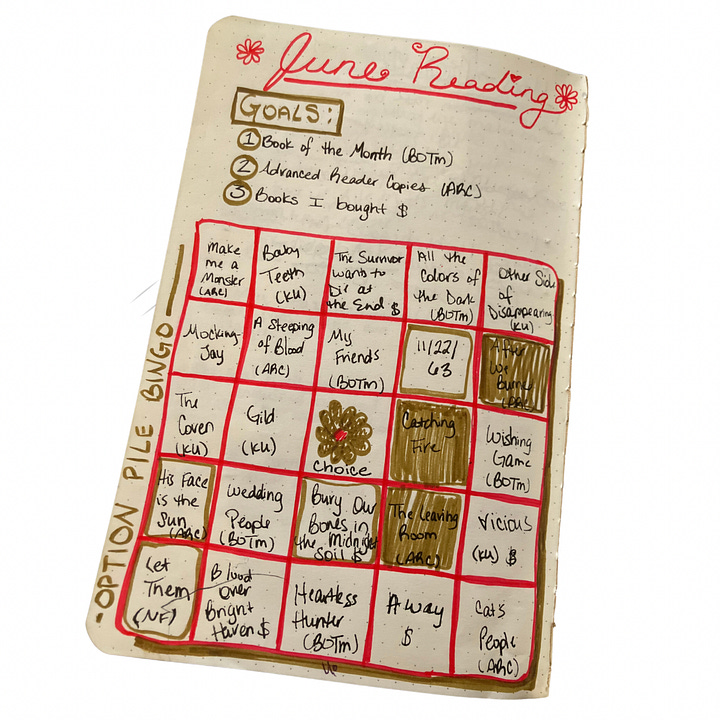 June Reading
GOALS:
1 Book of the Month (BOTM)
2 Advanced Reader Copies (ARC)
3 Books I bought $
-OPTION PILE BINGO-
Make
me a
Monster
(ARC)
Baby
Teeth
(KU)
The Survivor
wants to
Die at
the End $
All the
Colors of
the Dark
(BOTM)
Other Side
of
Disappearing
(KU)
Mocking-
Jay
A Steeping
of Blood
(ARC)
My
Friends
(BOTM)
11/22/
63
After
We
Burned
(ARC)
The
Coven
(KU)
Gild
(KU)
Choice
Catching
Fire
Wishing
Game
(BOTM)
His Face
is the
Sun
(ARC)
Wedding
People
(BOTM)
Bury Our
Bones in
the Midnight
Soil $
The Leaving
Room
(ARC)
Vicious
(KU) $
Let
Them
(NF)
Blood
Over
Bright
Haven $
Heartless
Hunter
(BOTM)
Away
$
Cat's
People
(ARC)